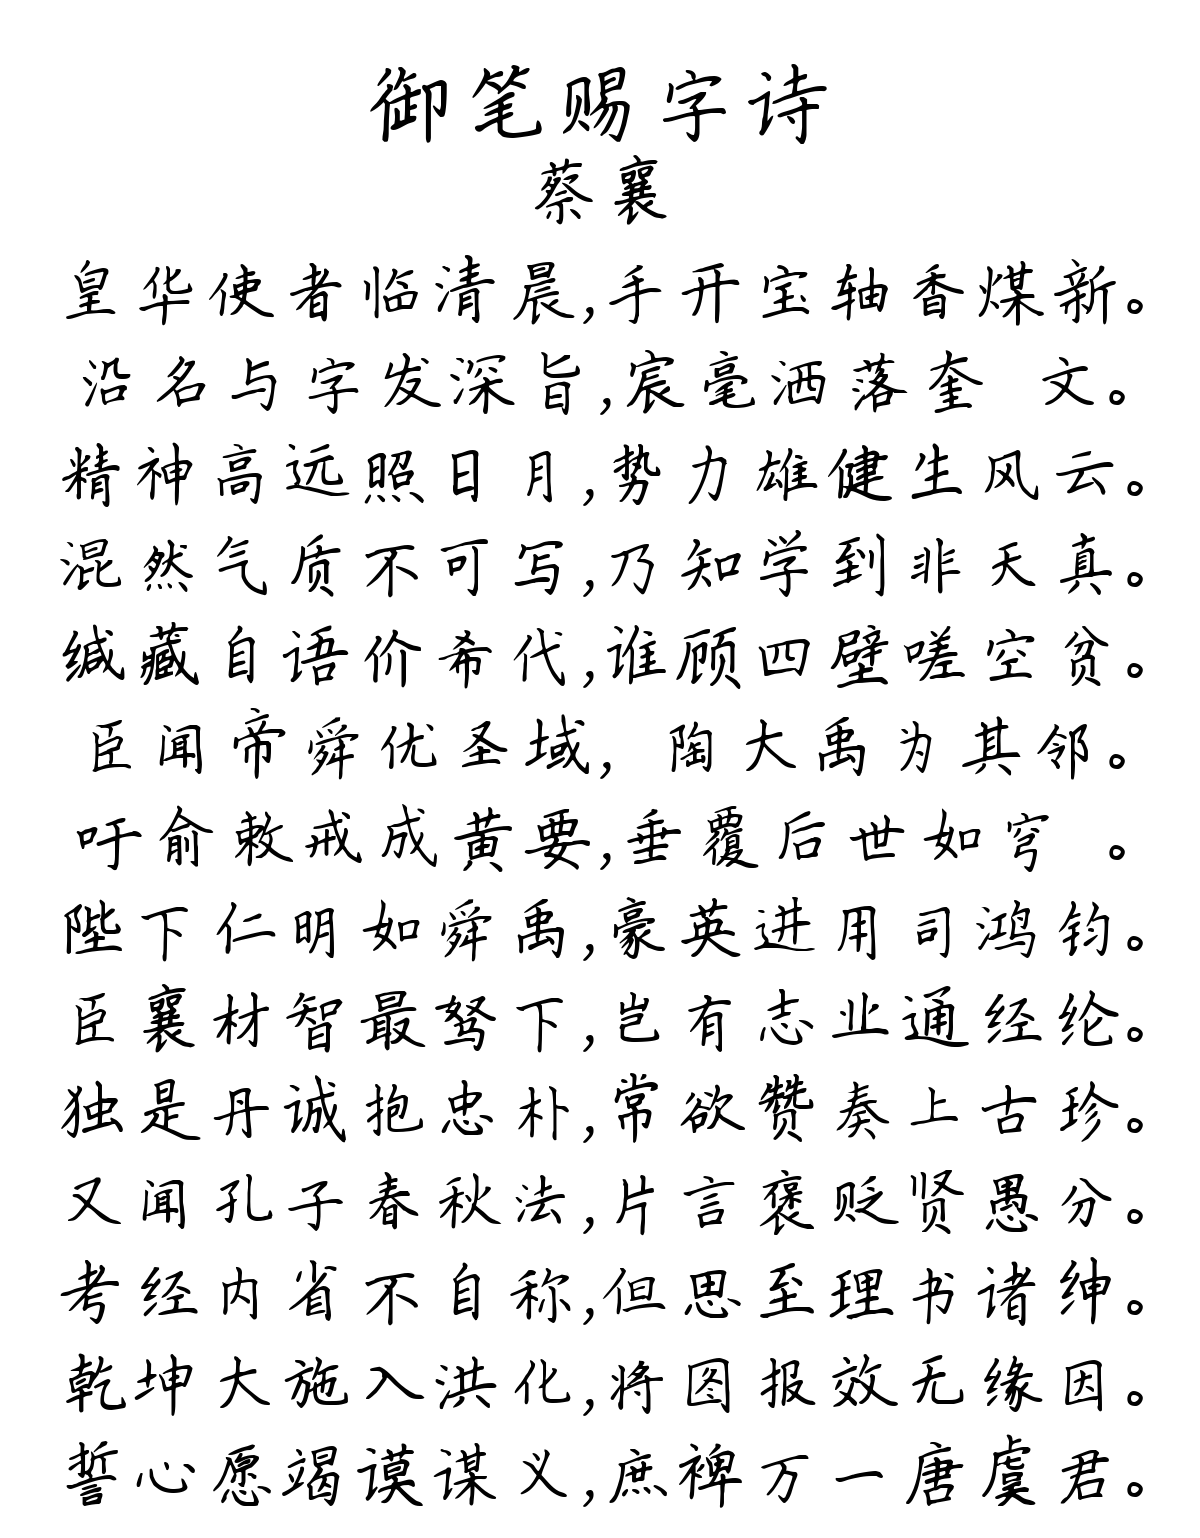 御笔赐字诗
蔡襄
皇华使者临清晨,手开宝轴香煤新。
沿名与字发深旨,宸毫洒落奎 文。
精神高远照日月,势力雄健生风云。
混然气质不可写,乃知学到非天真。
缄藏自语价希代,谁顾四壁嗟空贫。
臣闻帝舜优圣域, 陶大禹为其邻。
吁俞敕戒成黄要,垂覆后世如穹 。
陛下仁明如舜禹,豪英进用司鸿钧。
臣襄材智最驽下,岂有志业通经纶。
独是丹诚抱忠朴,常欲赞奏上古珍。
又闻孔子春秋法,片言褒贬贤愚分。
考经内省不自称,但思至理书诸绅。
乾坤大施入洪化,将图报效无缘因。
誓心愿竭谟谋义,庶裨万一唐虞君。